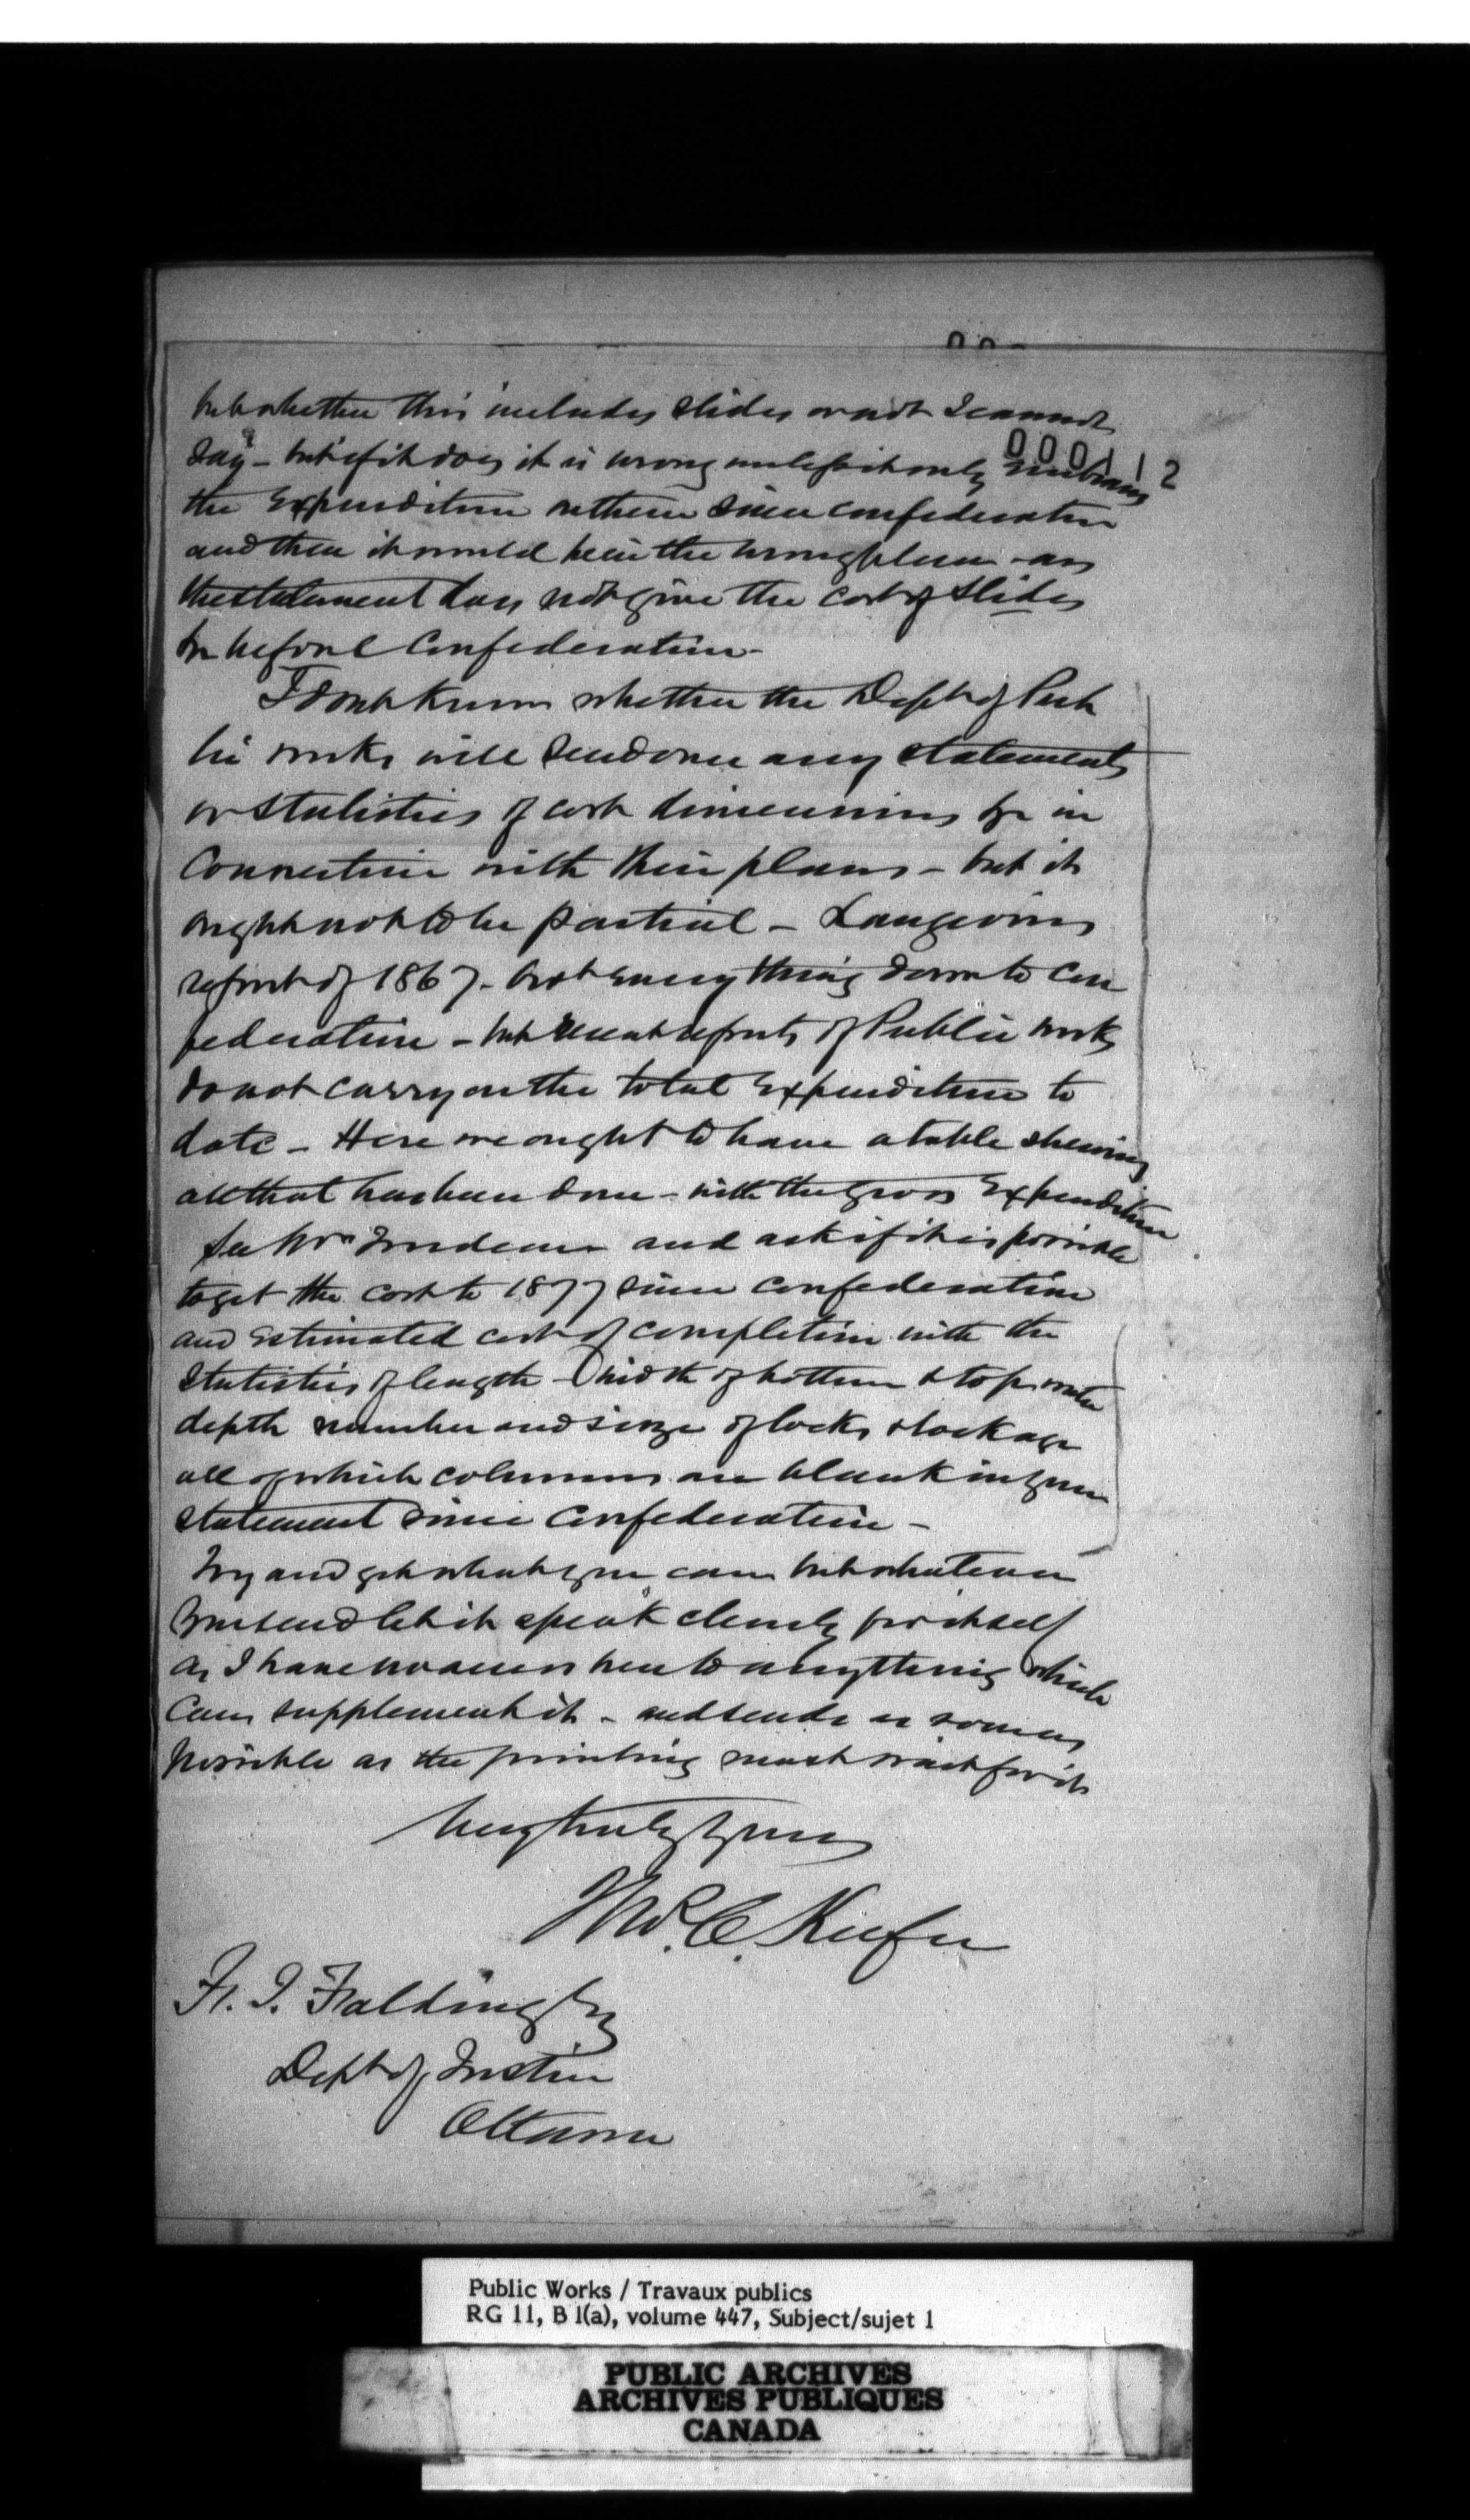 but whether this includes slides or not I cannot
say - but if it does it is wrong unless it only embraces
000112
the Expenditure on them since confederation
and then it would be in the wrong place - as
the statement does not give the cost of Slides
before Confederation -
I dont know whether the Dept of Pub
lic works will send over any statements
or statistics of cost dimensions &c in
connection with their plans - but it
ought not to be partial - Langevins
report of 1867 - everything down to Con
federation - but recent reports of Public works
do not carry on the total Expenditure to
date - Here we ought to have a table shewing
all that has been done - with the gross Expenditure
See Mr Trudeau and ask if it is possible
to get the cost to 1877 since confederation
and Estimated cost of completion with the
statistics of length - width of bottom & top water
depth number and size of locks & lockage
all of which columns are blank in your
statement since Confederation -
Try and get what you can but whatever
you send let it speak clearly for itself
as I have no access here to anything which
can supplement it - and send as soon as
possible as the printing must wait for it
Very truly yours
Thos. C. Keefer
F. Falding Esq
Dept of Justice
Ottawa
Public Works / Travaux publics
RG 11, B 1(a), volume 447, Subject/sujet 1
PUBLIC ARCHIVES
ARCHIVES PUBLIQUES
CANADA